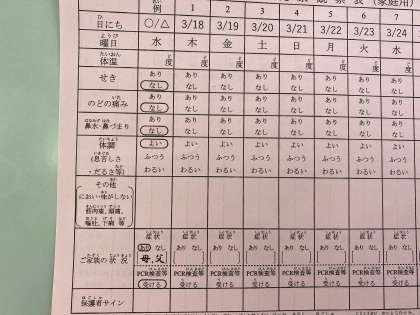 観察表（家庭用）
例 1 2 3 4 5 6 7
日にち ○/△ 3/18 3/19 3/20 3/21 3/22 3/23 3/24
曜日 水 木 金 土 日 月 火 水
体温 度 度 度 度 度 度 度 度
せき あり あり あり あり あり あり あり あり
なし なし なし なし なし なし なし なし
のどの痛み あり あり あり あり あり あり あり あり
なし なし なし なし なし なし なし なし
鼻水・鼻づまり あり あり あり あり あり あり あり あり
なし なし なし なし なし なし なし なし
体調 よい よい よい よい よい よい よい よい
（息苦しさ ふつう ふつう ふつう ふつう ふつう ふつう ふつう ふつう
・だるさ等） わるい わるい わるい わるい わるい わるい わるい わるい
その他
におい・味がしない
筋肉痛、頭痛、
嘔吐、下痢 等
症状 症状 症状 症状 症状 症状 症状 症状
あり なし あり なし あり なし あり なし あり なし あり なし あり なし あり なし
ご家族の状況 母、父
PCR検査等 PCR検査等 PCR検査等 PCR検査等 PCR検査等 PCR検査等 PCR検査等 PCR検査等
受ける 受ける 受ける 受ける 受ける 受ける 受ける 受ける
保護者サイン